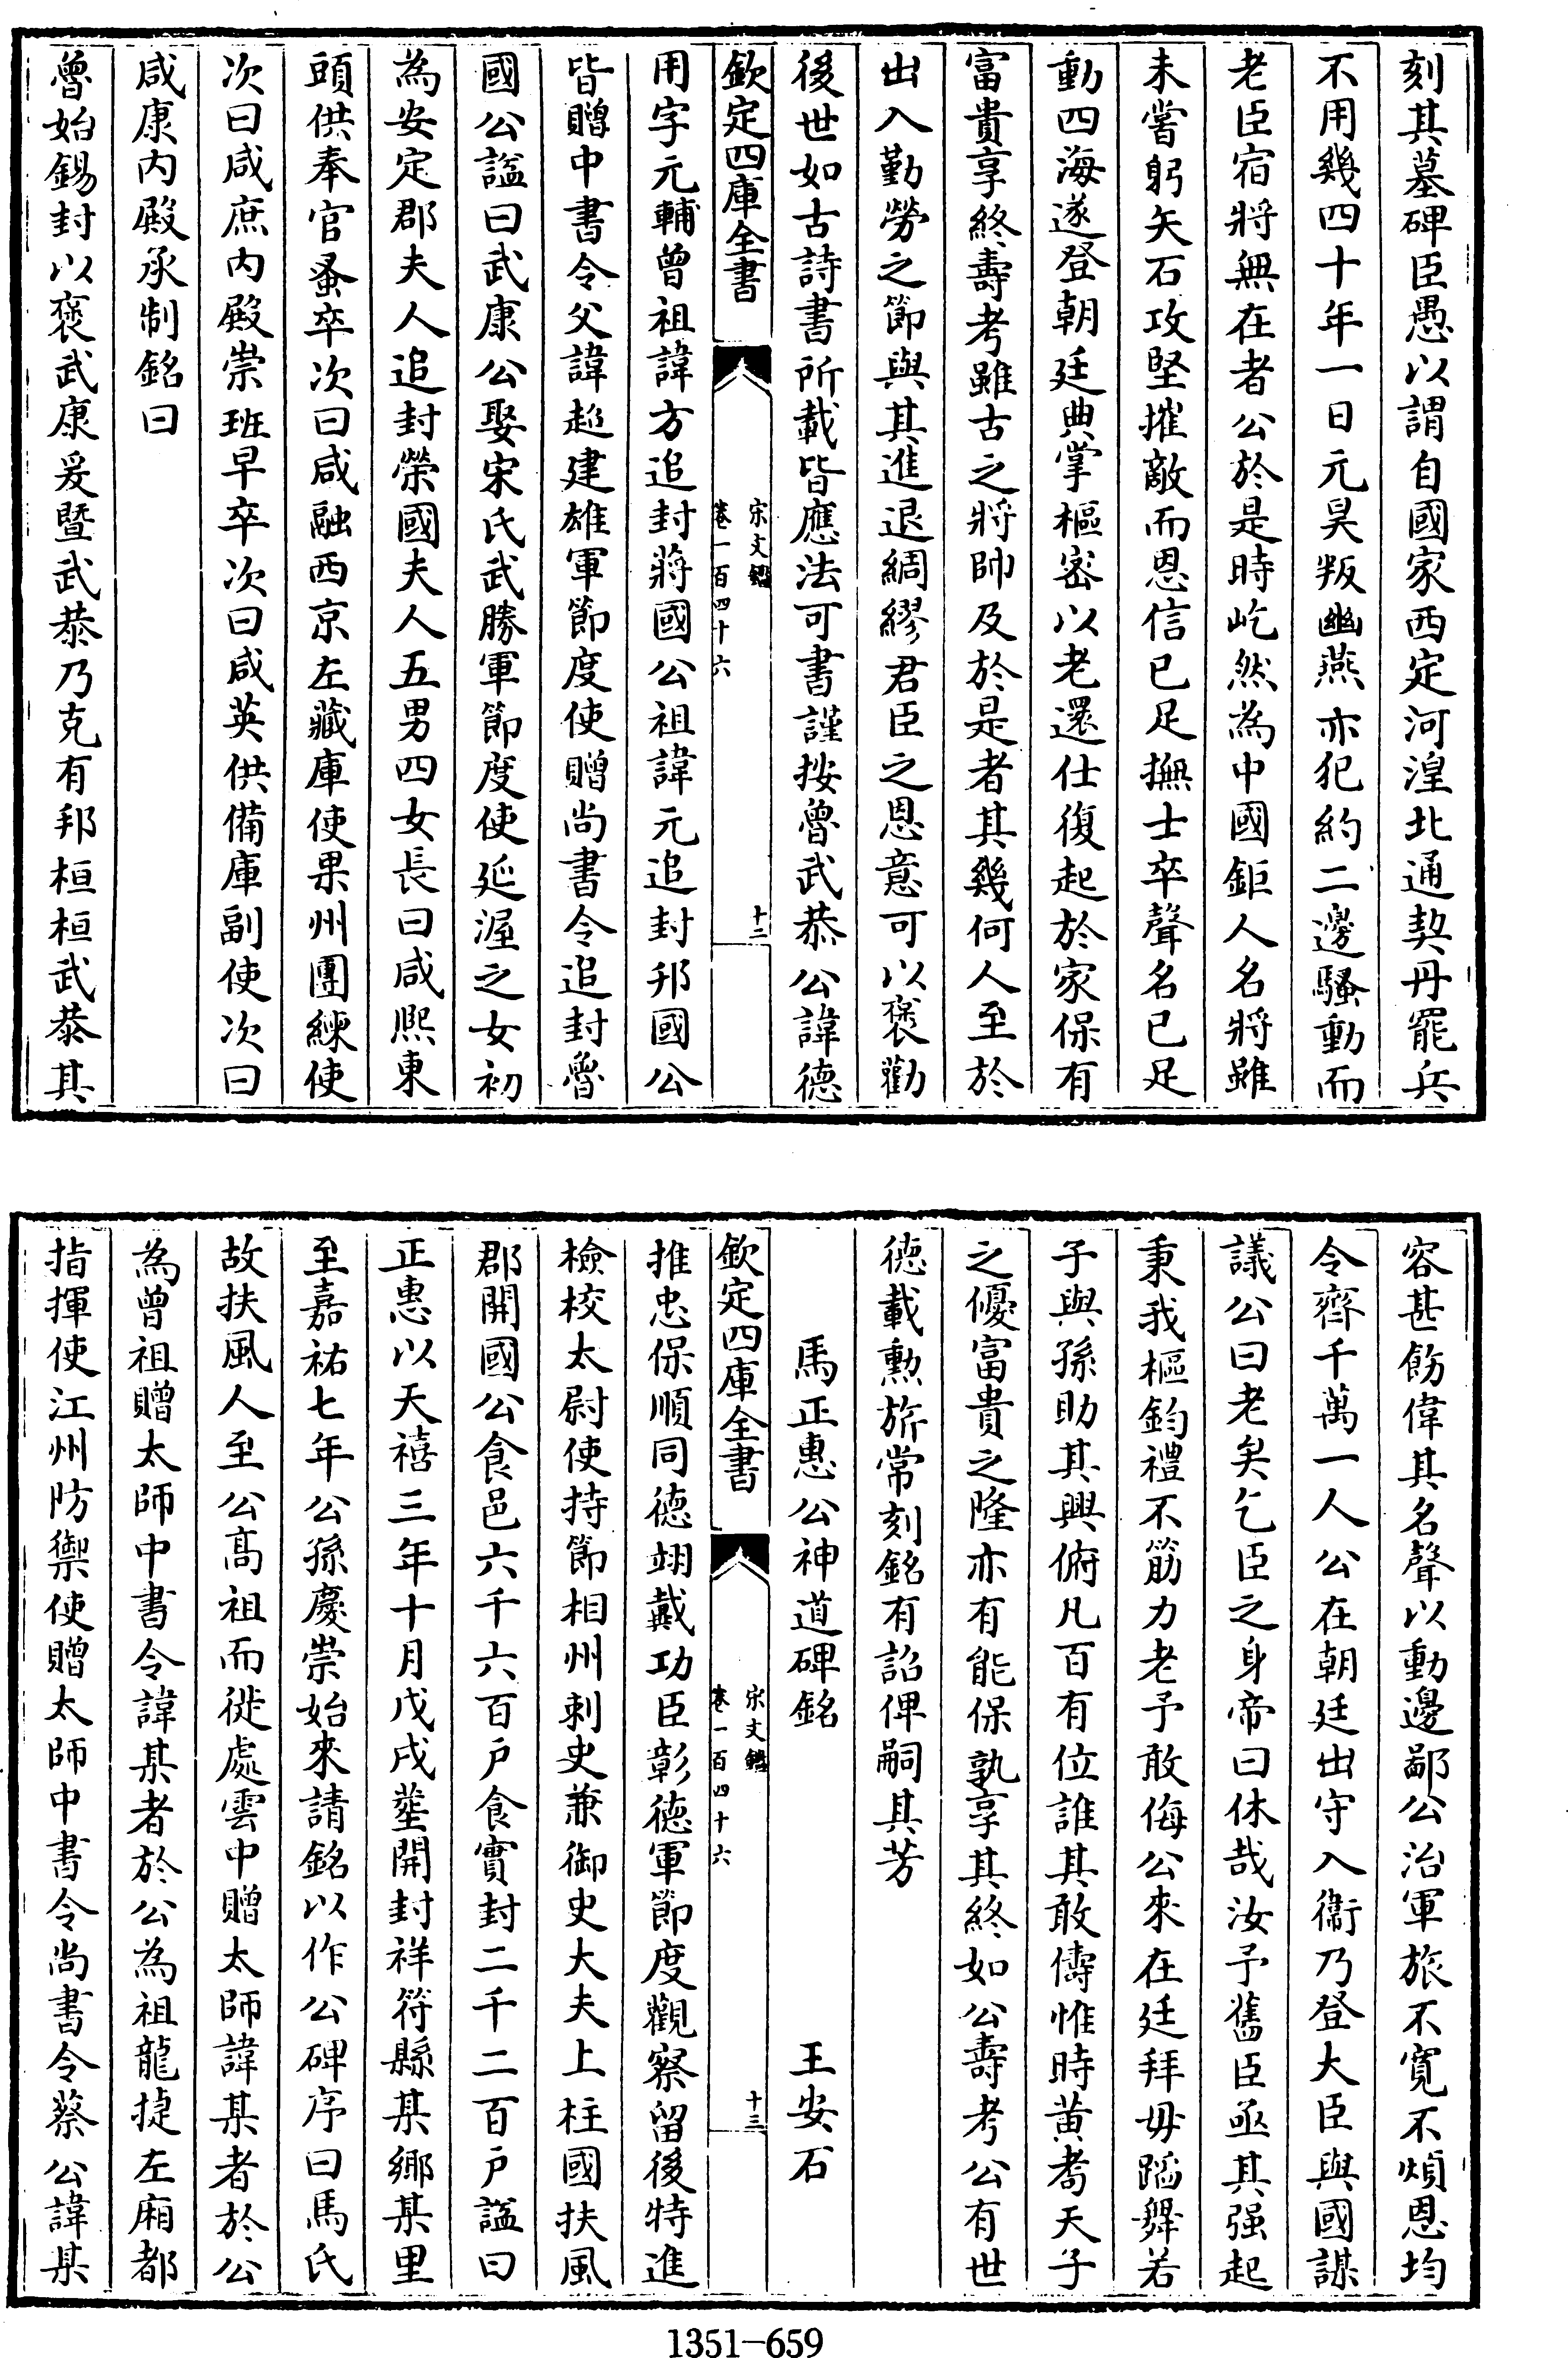 刻其墓碑臣愚以謂自國家西定河湟北通契丹罷兵
不用幾四十年一日元昊叛幽燕亦犯約二邊騷動而
老臣宿將無在者公於是時屹然為中國鉅人名將雖
未嘗躬矢石攻堅摧敵而恩信已足撫士卒聲名已足
動四海遂登朝廷典掌樞密以老還仕復起於家保有
富貴享終壽考雖古之將帥及於是者其幾何人至於
出入勤勞之節與其進退綢繆君臣之恩意可以褒勸
後世如古詩書所載皆應法可書謹按魯武恭公諱德
欽定四庫全書
宋文鑑
卷一百四十六
十二
用字元輔曾祖諱方追封蔣國公祖諱元追封邦國公
皆贈中書令父諱超建雄軍節度使贈尚書令追封魯
國公諡曰武康公娶宋氏武勝軍節度使延渥之女初
為安定郡夫人追封榮國夫人五男四女長曰咸熙東
頭供奉官蚤卒次曰咸融西京左藏庫使果州團練使
次曰咸庶內殿崇班早卒次曰咸英供備庫副使次曰
咸康內殿承制銘曰
魯始錫封以褒武康爰暨武恭乃克有邦桓桓武恭其
容甚飭偉其名聲以動邊鄙公治軍旅不寬不煩恩均
令齊千萬一人公在朝廷出守入衞乃登大臣與國謀
議公曰老矣乞臣之身帝曰休哉汝予舊臣亟其强起
秉我樞鈞禮不筋力老予敢侮公來在廷拜毋蹈舞若
子與孫助其興俯凡百有位誰其敢儔惟時黄耉天子
之優富貴之隆亦有能保孰享其終如公壽考公有世
德載勲旂常刻銘有詔俾嗣其芳
馬正惠公神道碑銘
王安石
欽定四庫全書
宋文鑑
卷一百四十六
十三
推忠保順同德翊戴功臣彰德軍節度觀察留後特進
檢校太尉使持節相州刺史兼御史大夫上柱國扶風
郡開國公食邑六千六百户食實封二千二百户諡曰
正惠以天禧三年十月戊戌塟開封祥符縣某鄉某里
至嘉祐七年公孫慶崇始來請銘以作公碑序曰馬氏
故扶風人至公高祖而徙處雲中贈太師諱某者於公
為曾祖贈太師中書令諱某者於公為祖龍捷左廂都
指揮使江州防禦使贈太師中書令尚書令蔡公諱某
1351-659